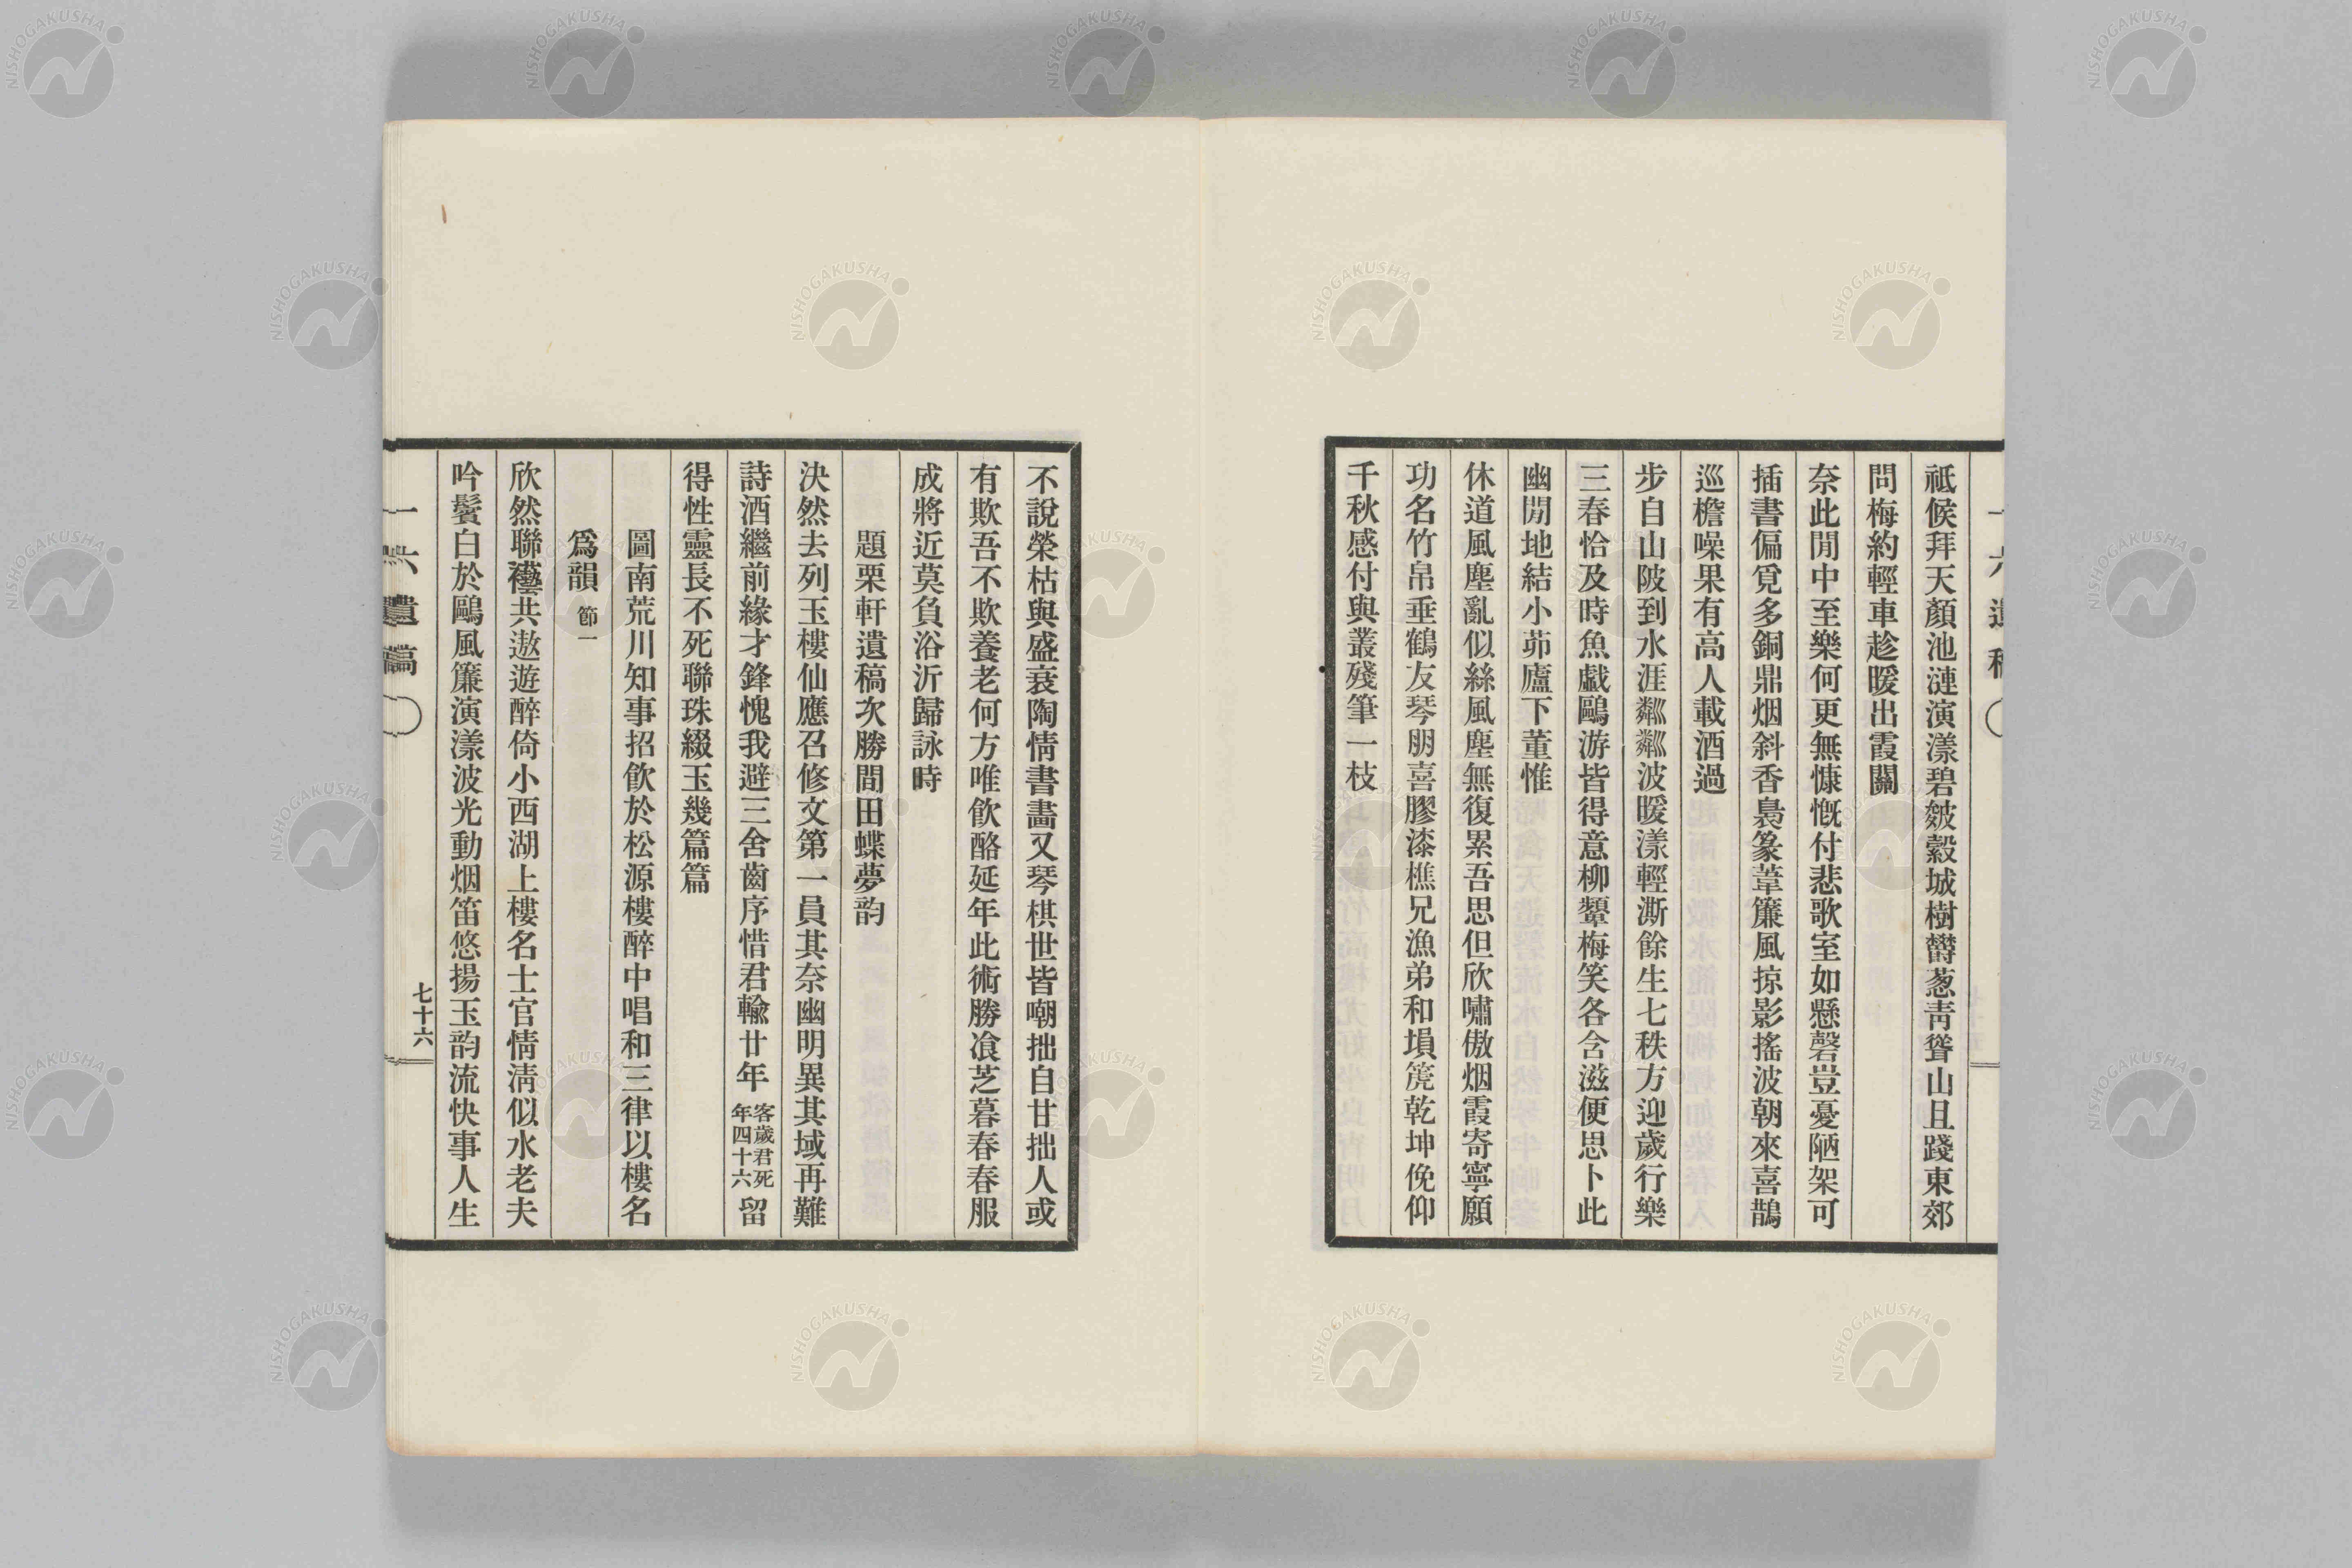 祗候拜天顏池漣演漾碧皴縠城樹欝葱靑聳山且踐東郊
問梅約輕車趁暖出霞關
奈此閒中至樂何更無慷慨付悲歌室如懸磬豈憂陋架可
插書偏覓多銅鼎烟斜香裊篆葦簾風掠影搖波朝來喜鵲
巡檐噪果有高人載酒過
步自山陂到水涯粼粼波暖漾輕澌餘生七秩方迎歲行樂
三春恰及時魚戱鷗游皆得意柳顰梅笑各含滋便思卜此
幽閒地結小茆廬下董惟
休道風塵亂似絲風塵無復累吾思但欣嘯傲烟霞寄寧願
功名竹帛垂鶴友琴朋喜膠漆樵兄漁弟和塤箎乾坤俛仰
千秋感付與叢殘筆一枝
一六遺稿
不說榮枯與盛衰陶情書畵又琴棋世皆嘲拙自甘拙人或
有欺吾不欺養老何方唯飮酪延年此術勝飡芝暮春春服
成將近莫負浴沂歸詠時
題栗軒遺稿次勝間田蝶夢韵
決然去列玉樓仙應召修文第一員其奈幽明異其域再難
詩酒繼前緣才鋒愧我避三舍齒序惜君輸廿年客歲君死年四十六留
得性靈長不死聯珠綴玉幾篇篇
圖南荒川知事招飮於松源樓醉中唱和三律以樓名
爲韻節一
欣然聯襼共遨遊醉倚小西湖上樓名士官情淸似水老夫
吟鬢白於鷗風簾演漾波光動烟笛悠揚玉韵流快事人生
一六遺稿
七十六
NISHOGAKUSHA